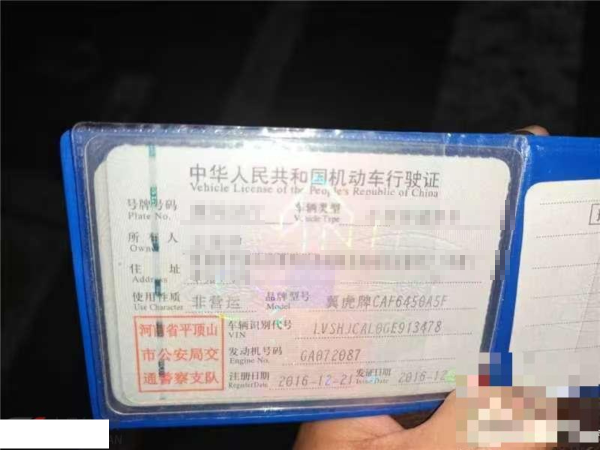 中华人民共和国机动车行驶证
Vehicle License of the People's Republic of China
号牌号码 车辆类型
Plate No. Vehicle Type
所有人
Owner
住址
Address
使用性质 非营运 品牌型号 翼虎牌CAF6450A5F
Use Character Model
河南省平顶山
市公安局交
通警察支队
车辆识别代号 LVSHJCAL0GE913478
VIN
发动机号码 GA072087
Engine No.
注册日期 2016-12-21 发证日期 2016-12
Register Date Issue Date